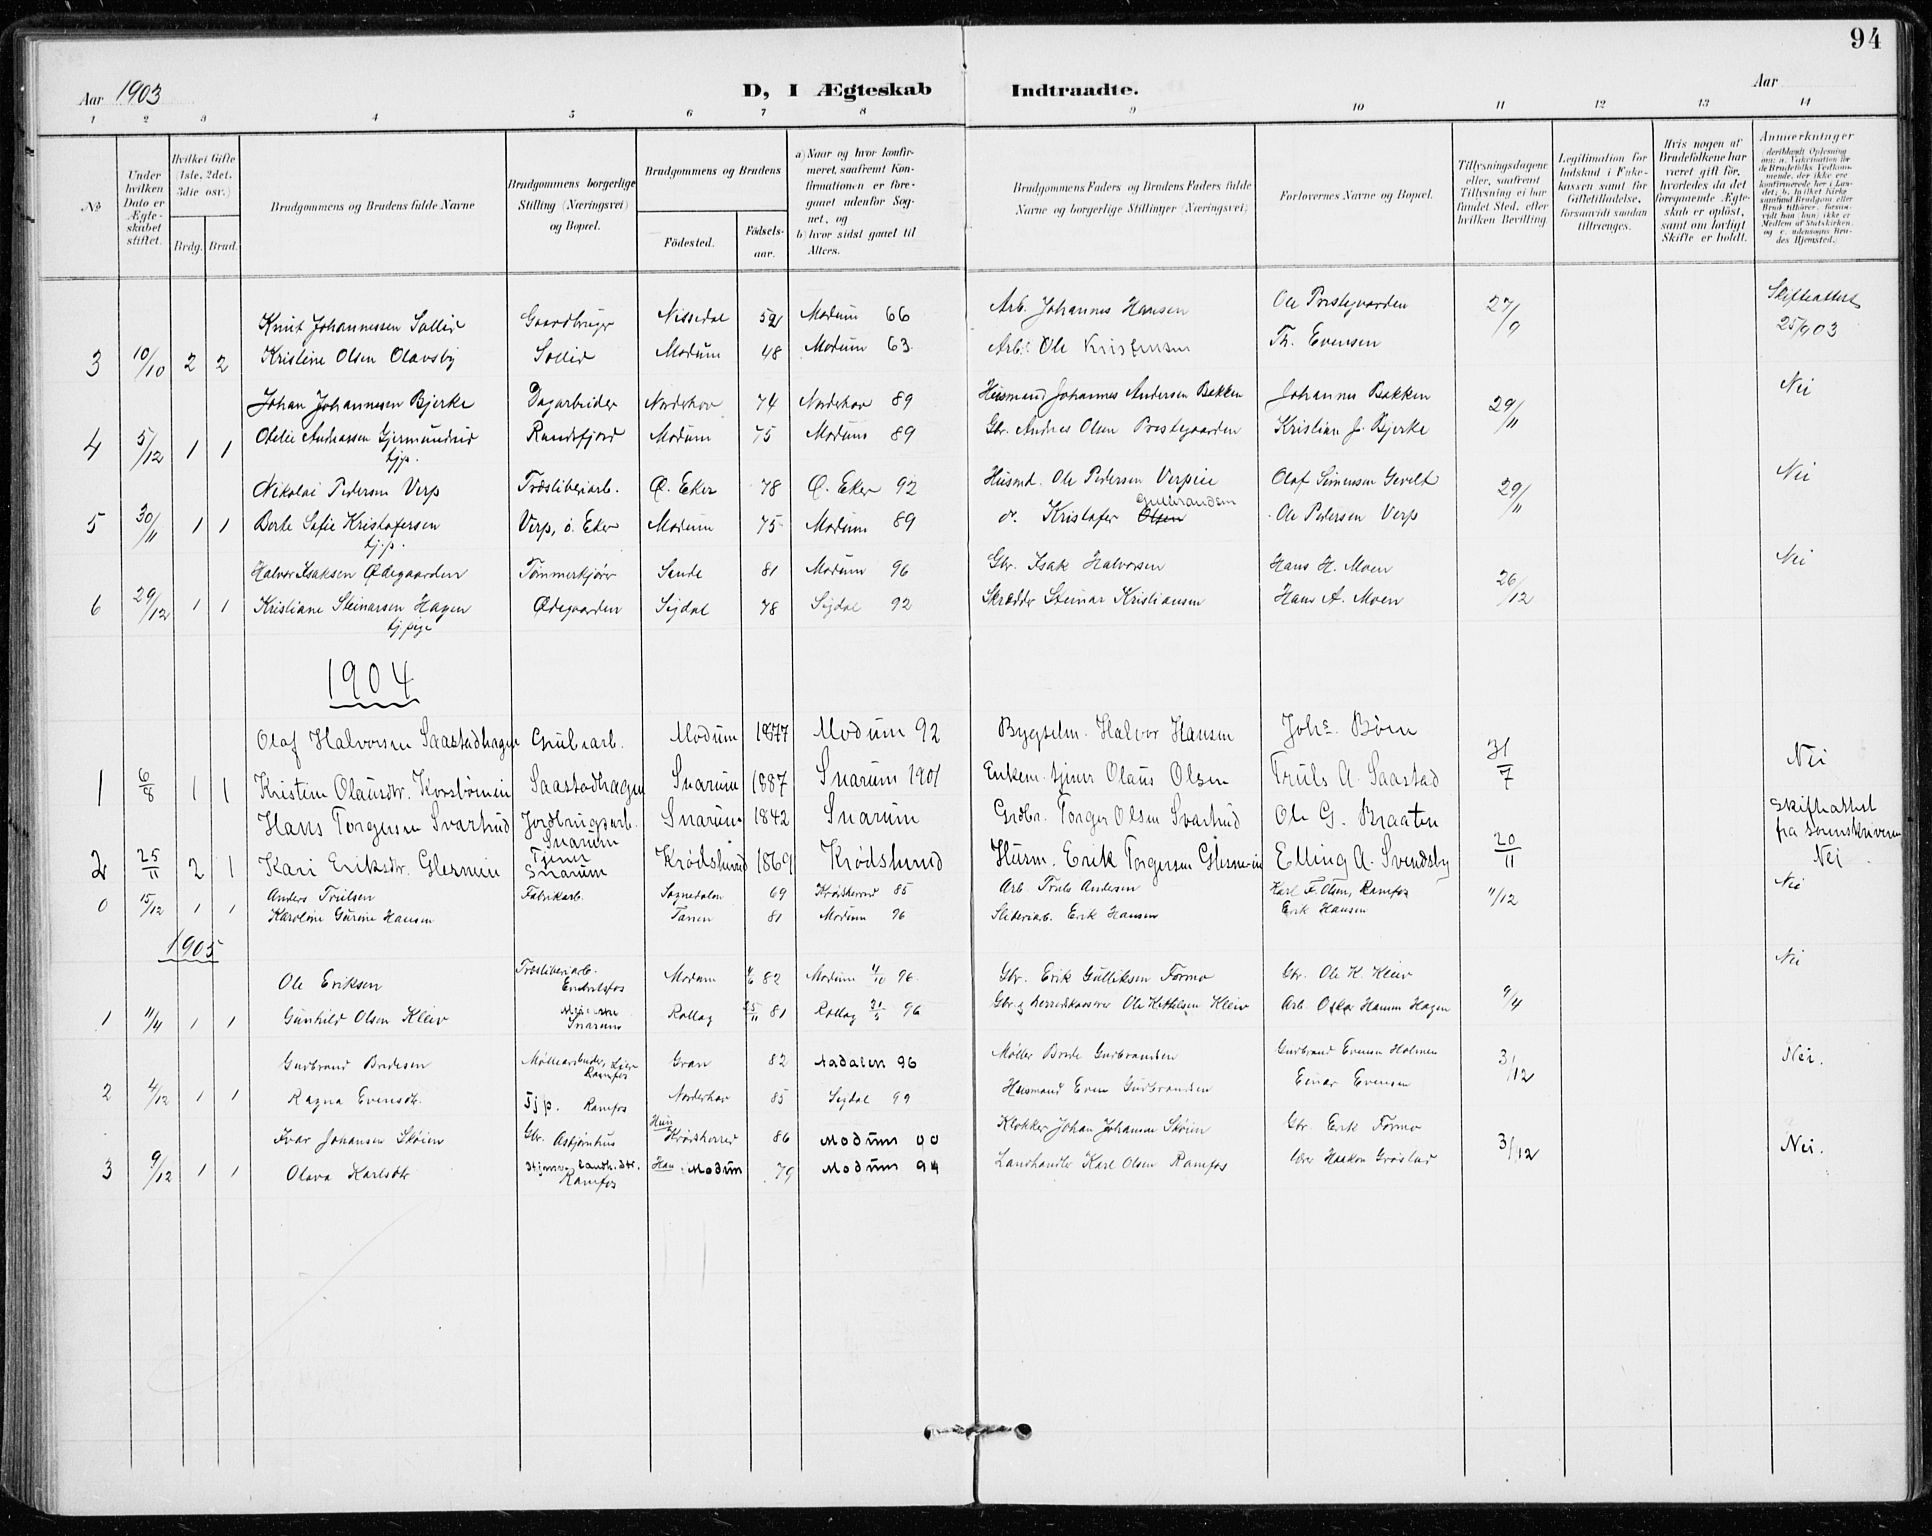 94
Aar 1903
D, I Ægteskab Indtraadte.
Aar
1 2 3 4 5 6 7 8 9 10 11 12 13 14
No
Under hvilken Dato er Ægteskabet stiftet.
Hvilket Gifte 1ste, 2det, 3die osv.)
Brdg. Brud.
Brudgommens og Brudens fulde Navne
Brudgommens borgerlige Stilling (Næringsvei) og Bopæl.
Brudgommens og Brudens
Fødested.
Fødselsaar.
a) Naar og hvor konfirmeret, saafremt Konfirmationen er foregaaet udenfor Sognet, og
b) hvor sidst gaaet til Alters.
Brudgommens Faders og Brudens Faders fulde Navne og borgerlige Stillinger (Næringsvei)
Forlovernes Navne og Bopæl.
Tillysningsdagene eller, saafremt Tillysning ei har fundet Sted, efter hvilken Bevilling
Legitimation for Indskud i Enkekassen samt for Giftetilladelse, forsaavidt saadan tiltrænges.
Hvis nogen af Brudefolkene har været gift før, hvorledes da det foregaaende Ægteskab er opløst, samt om lovligt Skifte er holdt.
Anmerkninger
Knut Johannessen Sollid Gaardbruger Nissedal 52 Modum 66 Arb. Johannes Hansen Ole Prestegaarden 27/9 Skifteattest
3 10/10 2 2 Kristine Olsen Olavsby Sollid Modum 48 Modum 63. Arb. Ole Kristensen Th. Evensen 25/9 03
Johan Johannesen Bjerke Dagarbeider Norderhov 74 Norderhov 89 Husmand Johannes Andersen Bakken Johannes Bakken 29/11 Nei
4 5/12 1 1 Otelie Andreassen Gjermundrud Randsfjord Modum 75 Modum 89 Gbr. Andres Olsen Prestegaarden Kristian J. Bjerke
tjp.
Nikolai Pedersen Verp Træsliberiarb. Ø. Eker 78 Ø. Eker 92 Husmd. Ole Pedersen Verpeie Olaf Simensen Gevelt 29/11 Nei
Gulbrandsen
5 30/11 1 1 Berte Sofie Kristofersen Verp, ø. Eker Modum 75 Modum 89 do. Kristofer Olsen Ole Pedersen Verp
tj.p.
Halvor Isaksen Ødegaarden Tømmerkjører Sande 81 Modum 96 Gbr. Isak Halvorsen Hans H. Moen 26/12 Nei
6 29/12 1 1 Kristiane Steinarsen Hagen Ødegaarden Sigdal 78 Sigdal 92 Skrædder Steinar Kristiansen Hans A. Moen
tj.pige
1904
Olaf Halvorsen Saastadhagen Grubearb. Modum 1877 Modum 92 Bygselm. Halvor Hansen Johs. Bøen 31/7 Nei
1 6/8 1 1 Kristine Olausdtr. Saastadhagen Snarum 1887 Snarum 1901 Enkem. tjener Olaus Olsen Truls A. Saastad
Hans Torgersen Svartrud Jordbrugsarb. Snarum Snarum 1842 Snarum Grdbr. Torger Olsen Svartrud Ole G. Braaten 20/11 Skifteattest fra Sorenskriveren
2 25/11 2 1 Kari Eriksdtr. Glesneien Tjener Snarum Krødsherad 1869 Krødsherad Husm. Erik Torgersen Glesneeie Elling A. Svendsby Nei
Anders Trulsen Fabrikarb. Sognedalen 69 Krødsherred 85 Arb. Truls Andersen Karl F. Olsen, Ramfos 11/12 Nei
0 15/12 1 1 Karoline Gurine Hansen 81 Modum 96 Sliberiarb. Erik Hansen Erik Hansen
1905
Ole Eriksen Træsliberiarb. Embretsfos Modum 82 Modum 96. Gbr. Erik Gulliksen Formo Gbr. Ole K. Kleiv 9/4 Nei
1 11/4 1 1 Gunhild Olsen Kleiv Meierske Snarum Rollag 25/11 81 Rollag 21/5 96 Gbr. & herredskasserer Ole Kittelsen Kleiv Arb. Oskar Hansen Hagen
Gudbrand Bredesen Møllearbeider, Lier Ramfos Gran 82 Aadalen 96 Møller Brede Gudbrandsen Gudbrand Evensen Holmen 3/12 Nei.
2 4/12 1 1 Ragna Evensdtr. Tjp. Ramfos Norderhov 85 Sigdal 99 Husmand Even Gudbrandsen Einar Evensen
Ivar Johansen Skøien Gbr. Asbjørnhus Krødsherred 86 Modum 00 Klokker Johan Johansen Skøien Gbr. Erik Formo 3/12 Nei.
3 9/12 1 1 Olava Karlsdtr. Ramfos Modum 79 Modum 94 Landhandler Karl Olsen Ramfos Haakon Grøslad